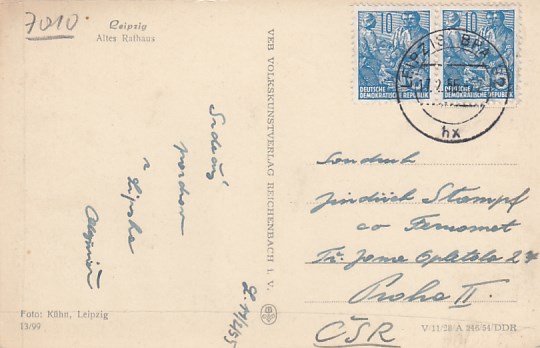 7010
Leipzig
Altes Rathaus
Srdečný
pozdrav
z Lipska
L. 17/2 55
Foto: Kühn, Leipzig
13/99
VEB VOLKSKUNSTVERLAG REICHENBACH I. V.
10
DEUTSCHE
DEMOKRATISCHE REPUBLIK
10
5
DEUTSCHE
DEMOKRATISCHE REPUBLIK
LEIPZIG
hx
Soudruh
Jindřich Stampf
co Ferromet
Tř. Jana Opletala 27
Praha II.
ČSR
V 11/28 A 246/54 DDR